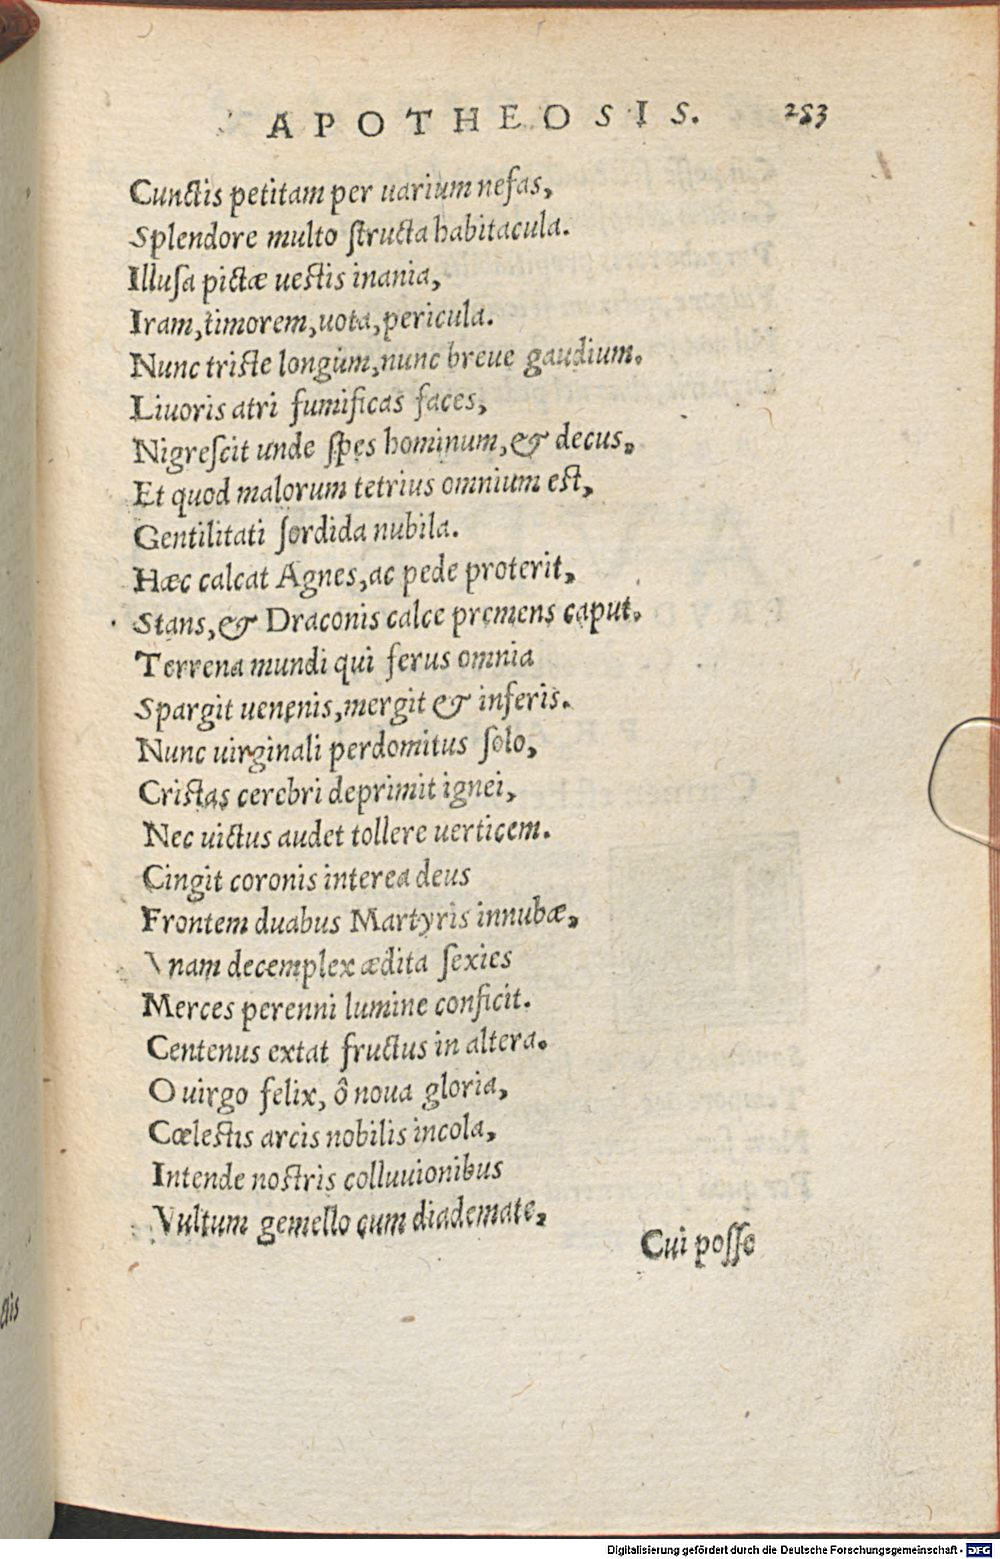 APOTHEOSIS. 253
Cunctis petitam per uarium nefas,
Splendore multo structa habitacula.
Illusa pictæ uestis inania,
Iram, timorem, uota, pericula.
Nunc triste longum, nunc breue gaudium.
Liuoris atri fumificas faces,
Nigrescit unde spes hominum, & decus.
Et quod malorum tetrius omnium est,
Gentilitati sordida nubila.
Hæc calcat Agnes, ac pede proterit,
Stans, & Draconis calce premens caput.
Terrena mundi qui ferus omnia
Spargit uenenis, mergit & inferis.
Nunc uirginali perdomitus solo,
Cristas cerebri deprimit ignei,
Nec uictus audet tollere uerticem.
Cingit coronis interea deus
Frontem duabus Martyris innubæ,
Vnam decemplex ædita sexies
Merces perenni lumine conficit.
Centenus extat fructus in altera.
O uirgo felix, ô noua gloria,
Cœlestis arcis nobilis incola,
Intende nostris colluuionibus
Vultum gemello cum diademate,
Cui posse
ctis
Digitalisierung gefördert durch die Deutsche Forschungsgemeinschaft - DFG